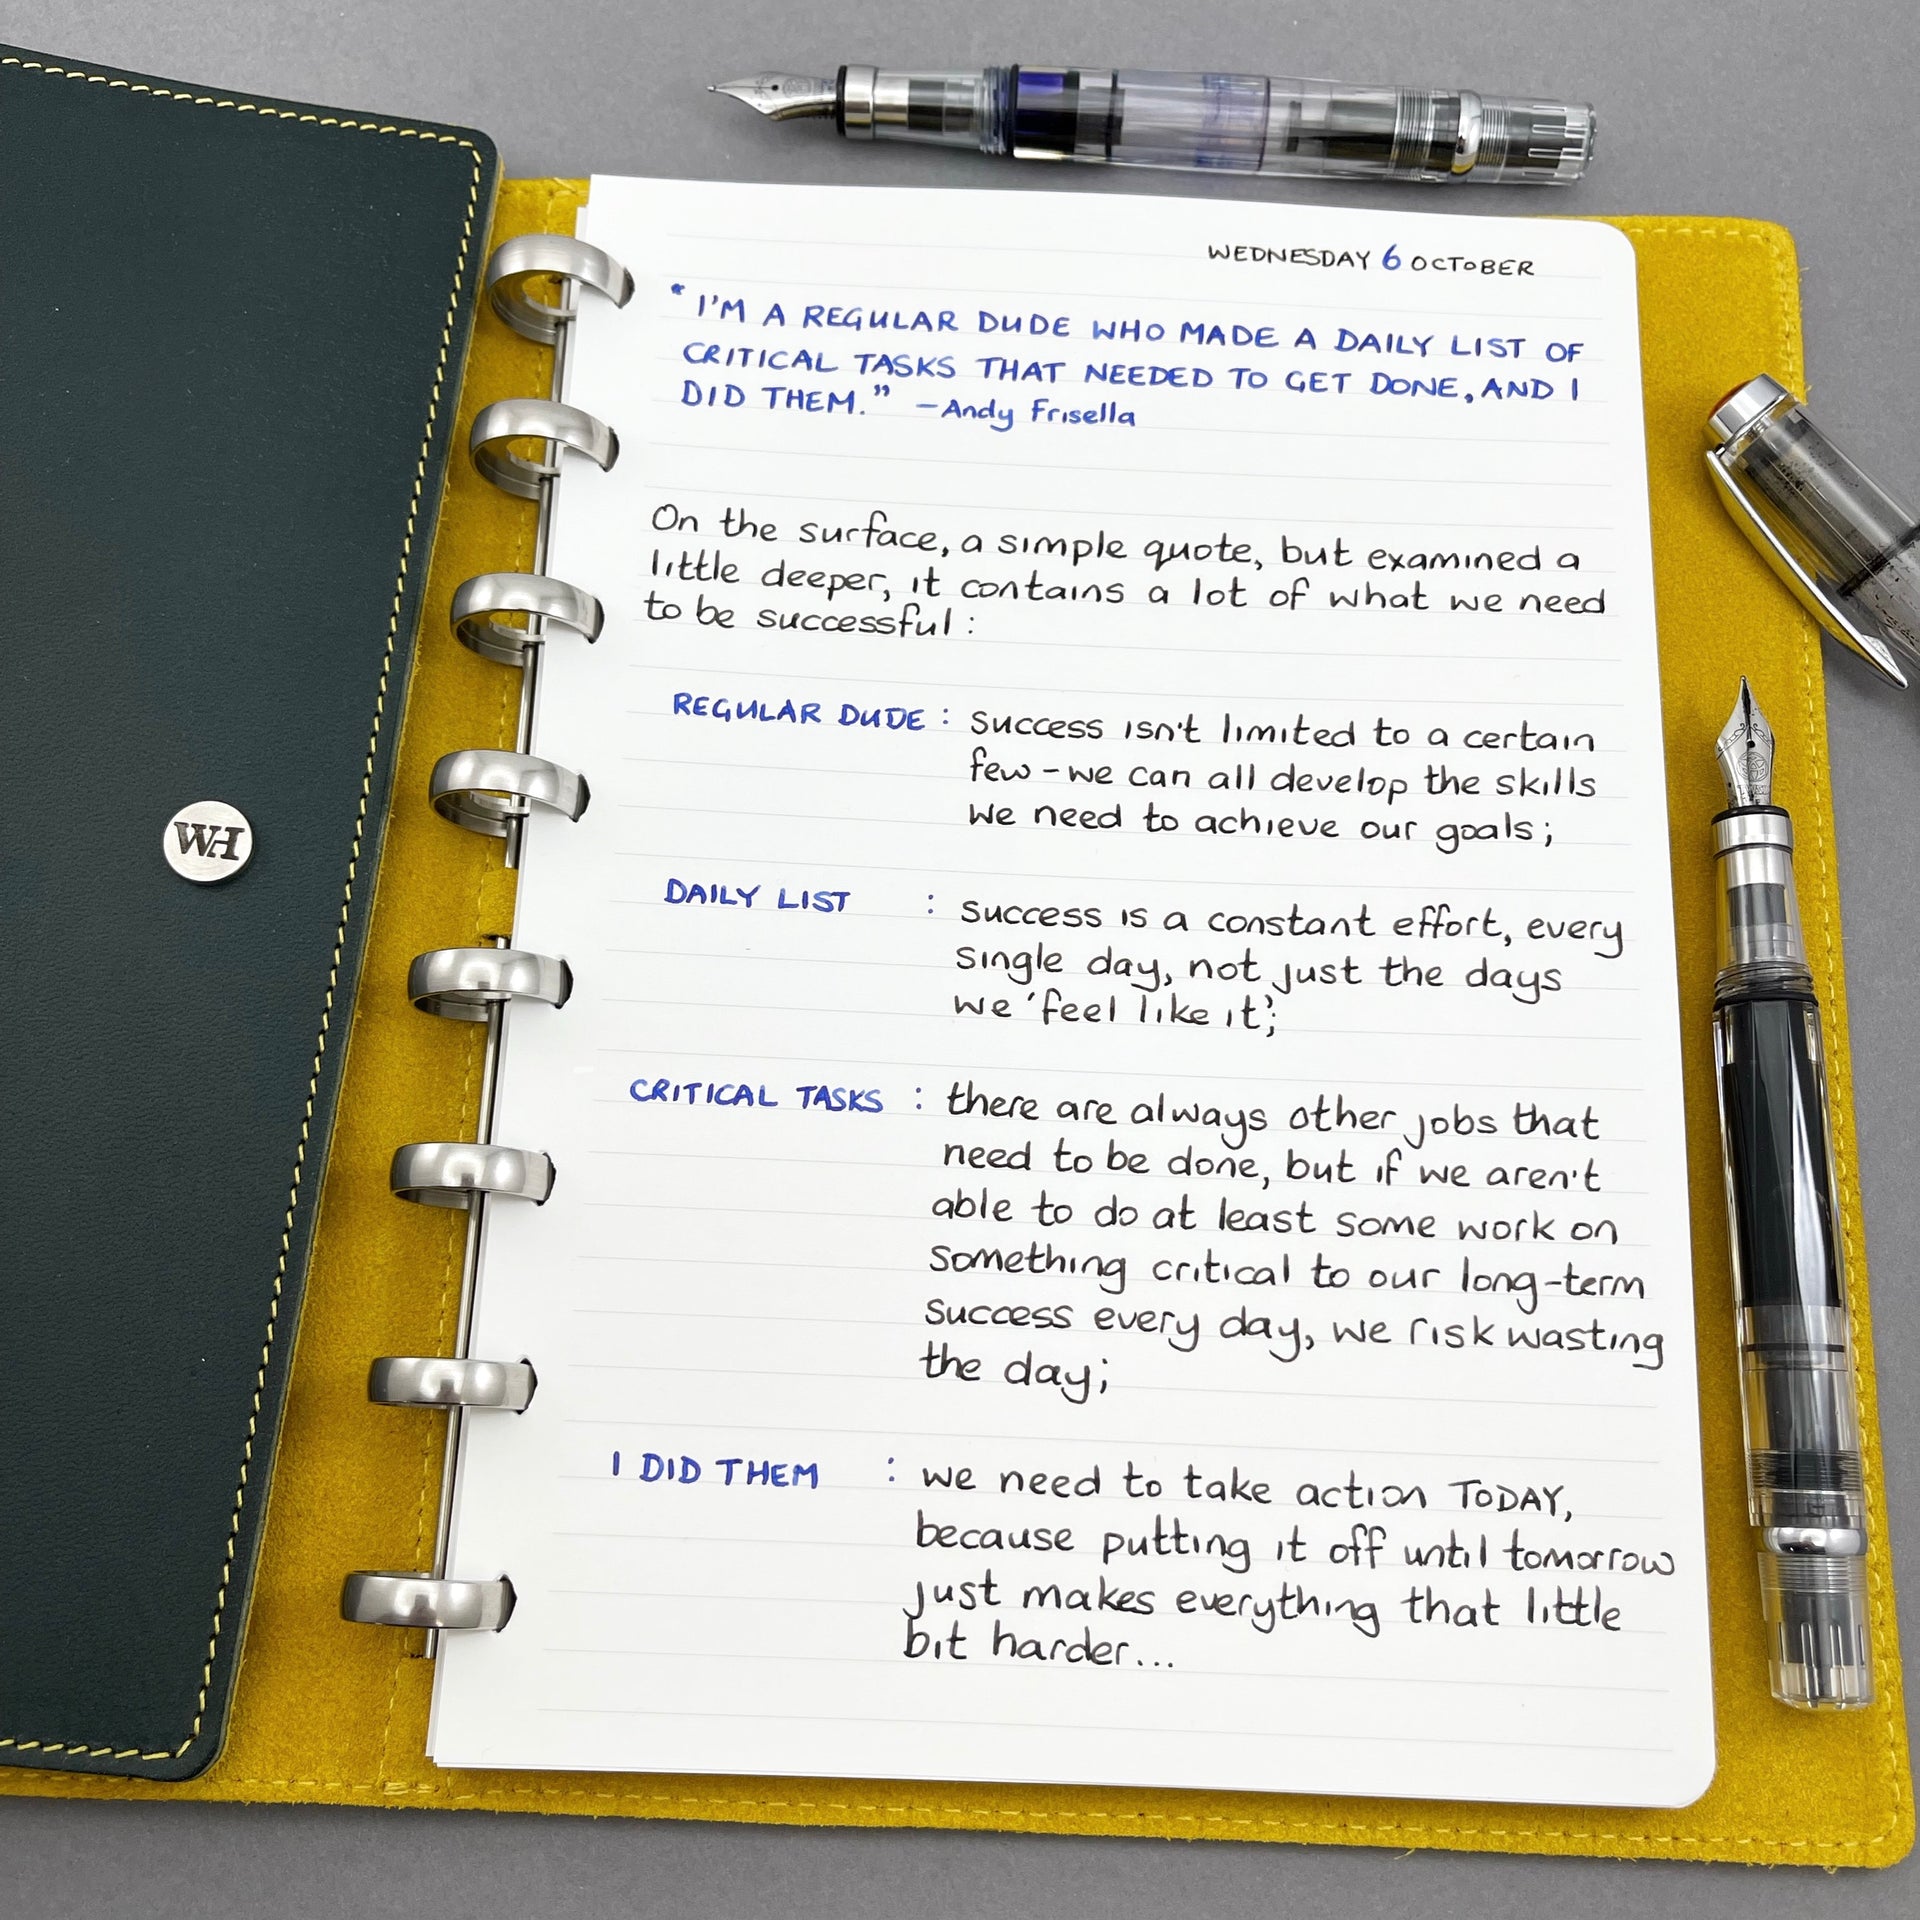 WEDNESDAY 6 OCTOBER
"I'M A REGULAR DUDE WHO MADE A DAILY LIST OF
CRITICAL TASKS THAT NEEDED TO GET DONE, AND I
DID THEM." -Andy Frisella
On the surface, a simple quote, but examined a
little deeper, it contains a lot of what we need
to be successful:
REGULAR DUDE: success isn't limited to a certain
few-we can all develop the skills
we need to achieve our goals;
DAILY LIST : success is a constant effort, every
single day, not just the days
we 'feel like it';
CRITICAL TASKS : there are always other jobs that
need to be done, but if we aren't
able to do at least some work on
something critical to our long-term
success every day, we risk wasting
the day;
I DID THEM : we need to take action TODAY,
because putting it off until tomorrow
just makes everything that little
bit harder...
WH